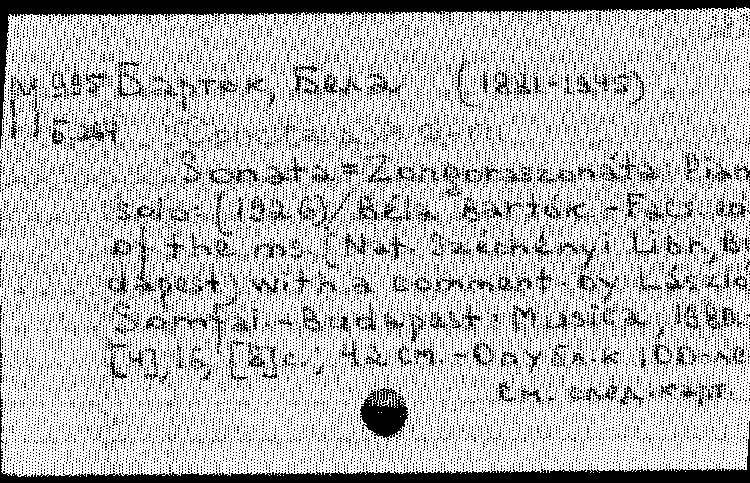 М 995 Барток, Бела (1881-1945)
Б-
Sonata = Zongoraszonáta: Pian
solo: (1926) / Béla Bartók. - Facs. ed.
of the ms. (Nat. Széchényi Libr., Bu
dapest) with a comment. by László
Somfai. - Budapest: Musica, 1980. -
[4], 16, [2] с.; 42 см. - Опубл. к 100-ле
См. след. карт.